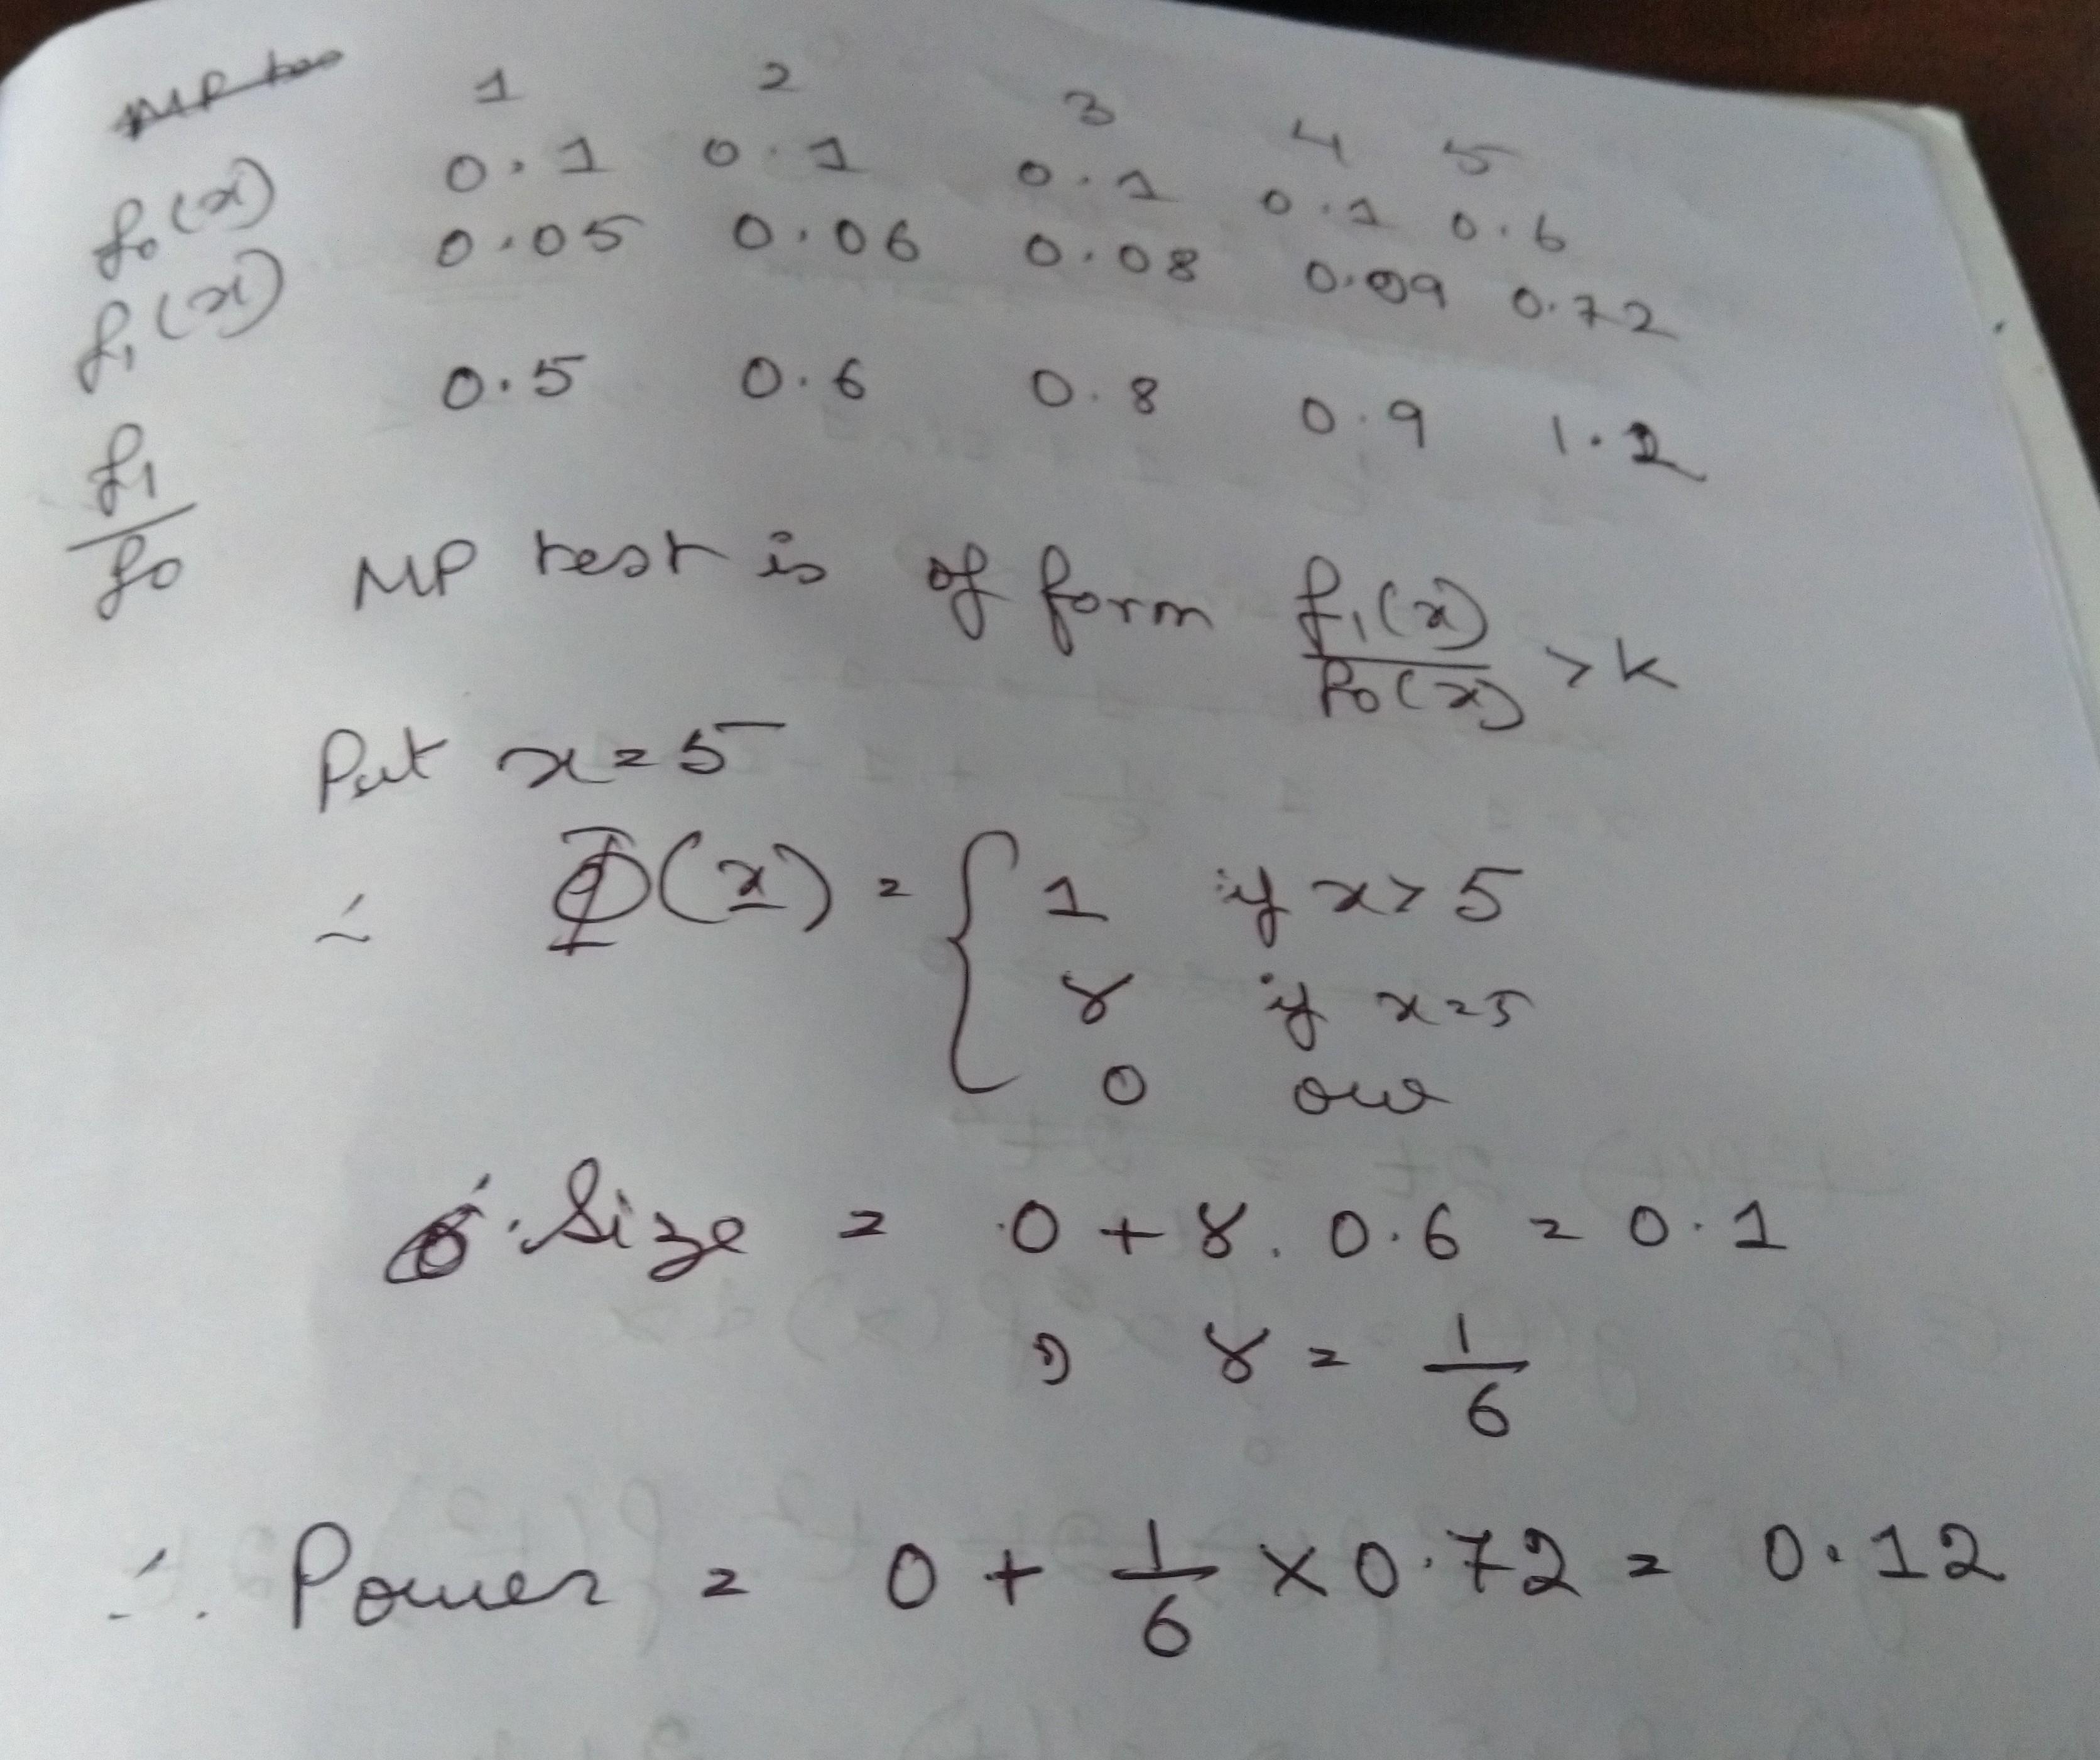 1 2 3 4 5
f₀(x) 0.1 0.1 0.1 0.1 0.6
f₁(x) 0.05 0.06 0.08 0.09 0.72
f₁/f₀ 0.5 0.6 0.8 0.9 1.2
MP test is of form f₁(x)/f₀(x) > k
Put x = 5
∴ Φ(x) = { 1 if x > 5
γ if x = 5
0 ow
∴ Size = 0 + γ. 0.6 = 0.1
⇒ γ = 1/6
∴ Power = 0 + 1/6 × 0.72 = 0.12